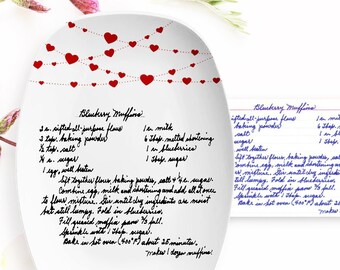 Blueberry Muffins
2 c. sifted all-purpose flour
1 c. milk
2 tsp. baking powder
6 tbsp. melted shortening
½ tsp. salt
1 c. blueberries
¼ c. sugar
1 tbsp. sugar
1 egg, well beaten
Sift together flour, baking powder, salt + ¼ c. sugar.
Combine egg, milk and shortening and add all at once
to flour mixture. Stir until dry ingredients are moist
but still lumpy. Fold in blueberries.
Fill greased muffin pans ⅔ full.
Sprinkle with 1 tbsp. sugar.
Bake in hot oven (400°F) about 25 minutes.
Makes 1 dozen muffins.
Blueberry Muffins
sifted all-purpose flour
1 c. milk
baking powder
6 tbsp.
salt
1 c.
sugar
1 tbsp.
well beaten
Sift together flour, baking powder, salt
Combine egg, milk and shortening and
to flour mixture. Stir until dry ingredients
but still lumpy. Fold in blueberries.
Fill greased muffin pans ⅔ full.
Sprinkle with 1 tbsp. sugar.
Bake in hot oven (400°F) about 25